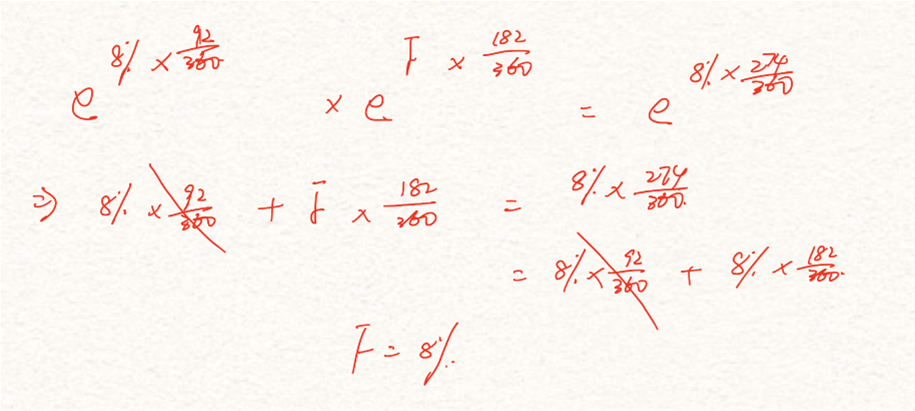 e^{8% × 92/360} × e^{F × 182/360} = e^{8% × 274/360}
⇒ 8% × 92/360 + F × 182/360 = 8% × 274/360.
= 8% × 92/360 + 8% × 182/360.
F = 8%.